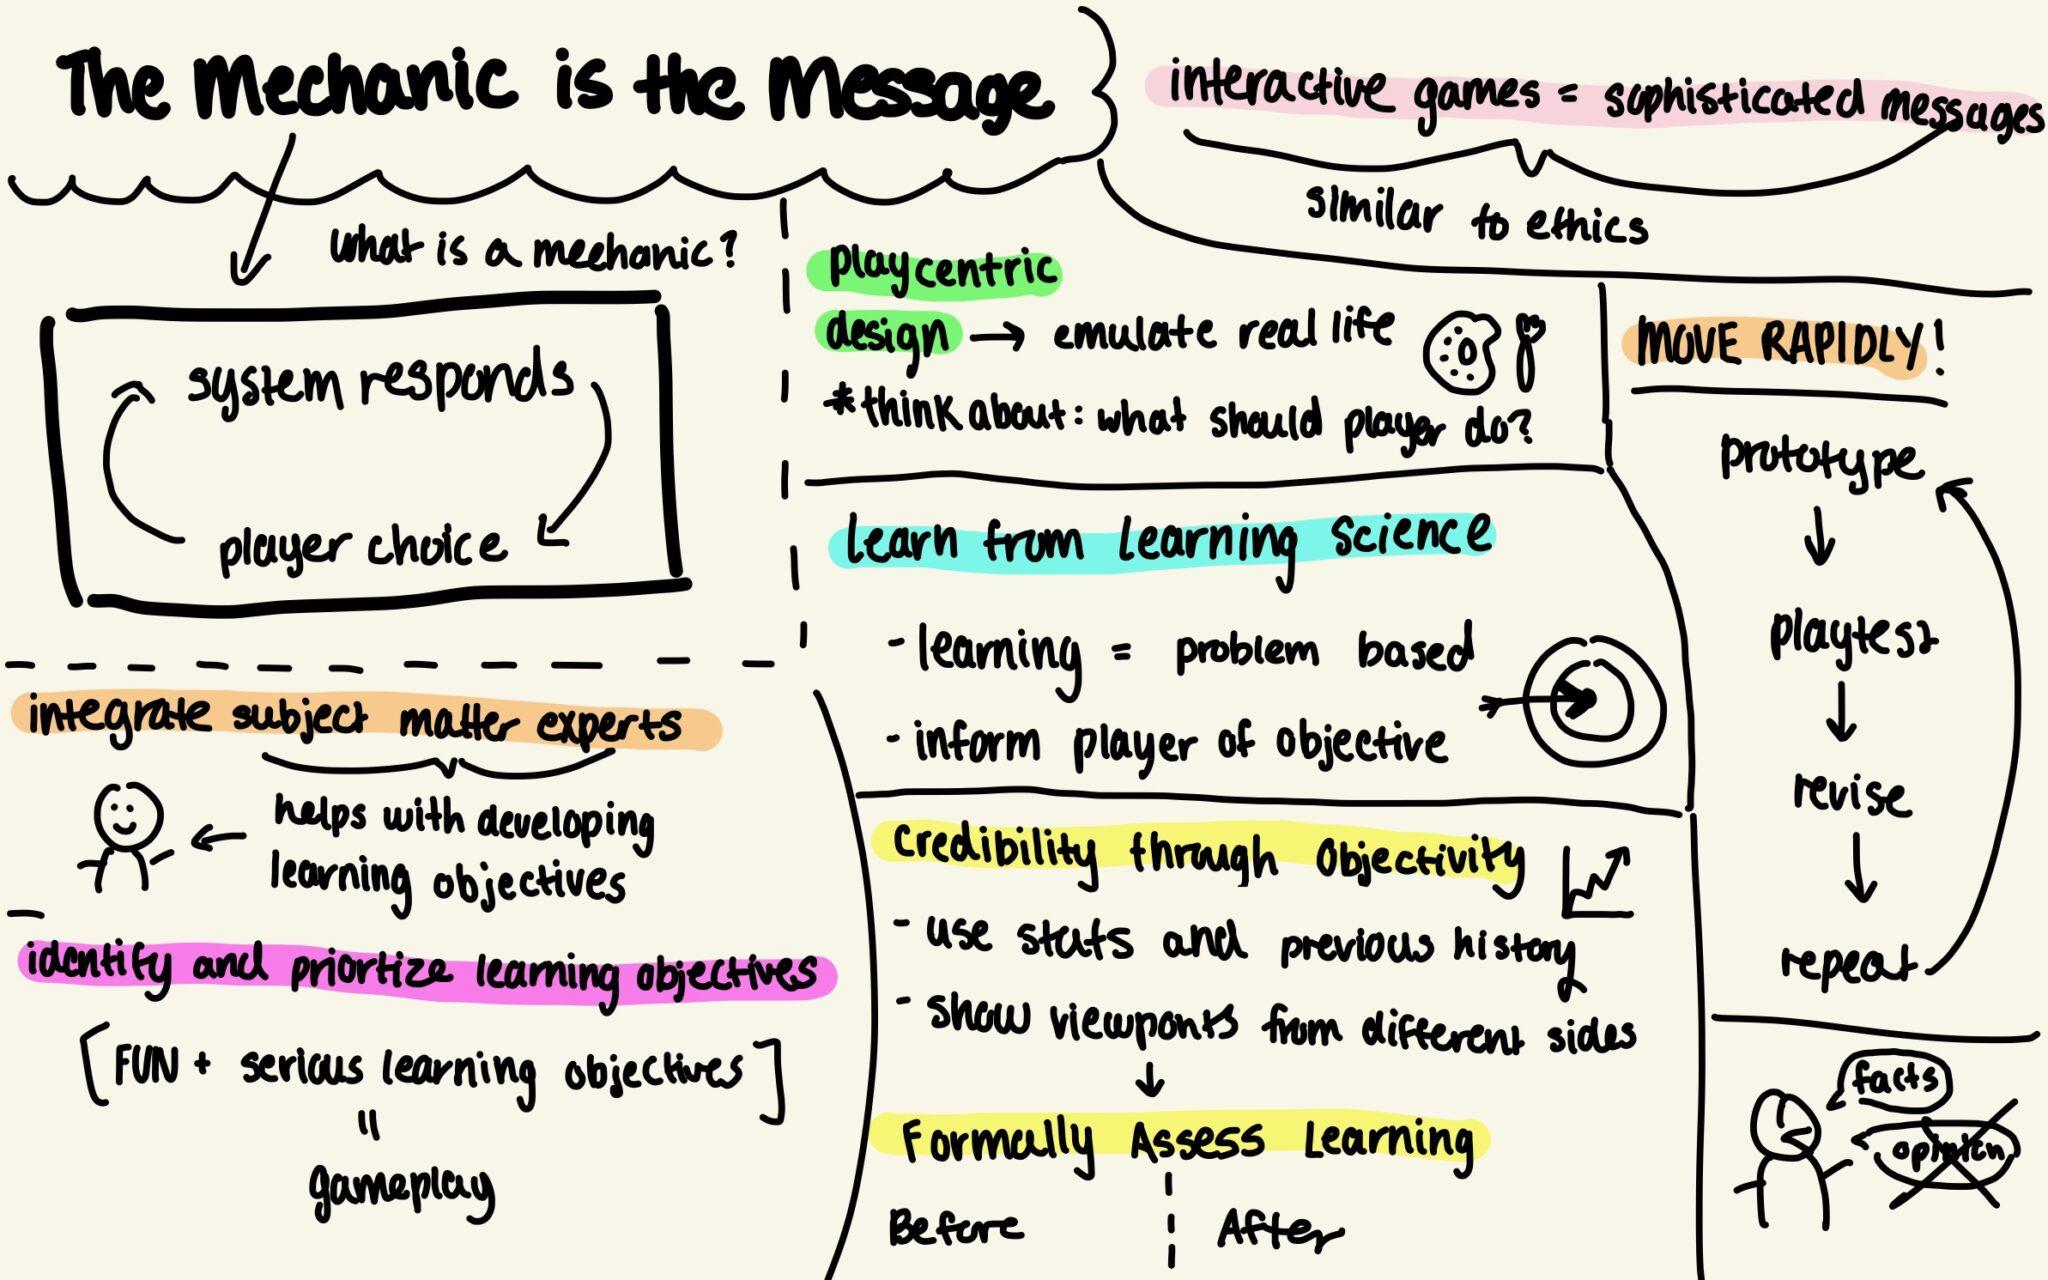 The Mechanic is the Message
interactive games = sophisticated messages
similar to ethics
what is a mechanic?
system responds
player choice
playcentric
design → emulate real life
*think about: what should player do?
MOVE RAPIDLY!
prototype
playtest
revise
repeat
learn from learning science
- learning = problem based
- inform player of objective
integrate subject matter experts
helps with developing
learning objectives
identify and prioritize learning objectives
[FUN + serious learning objectives]
=
gameplay
credibility through objectivity
- use stats and previous history
- show viewponts from different sides
Formally Assess Learning
Before
After
facts
opinion